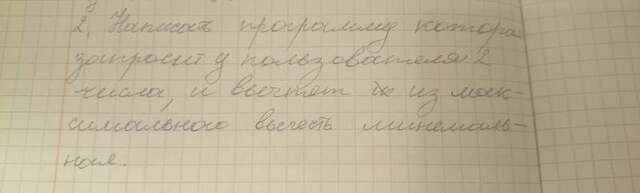 2. Написать программу котора
запросит у пользователя 2
числа, и вычтет из мак-
симального вычесть минемаль-
ная.